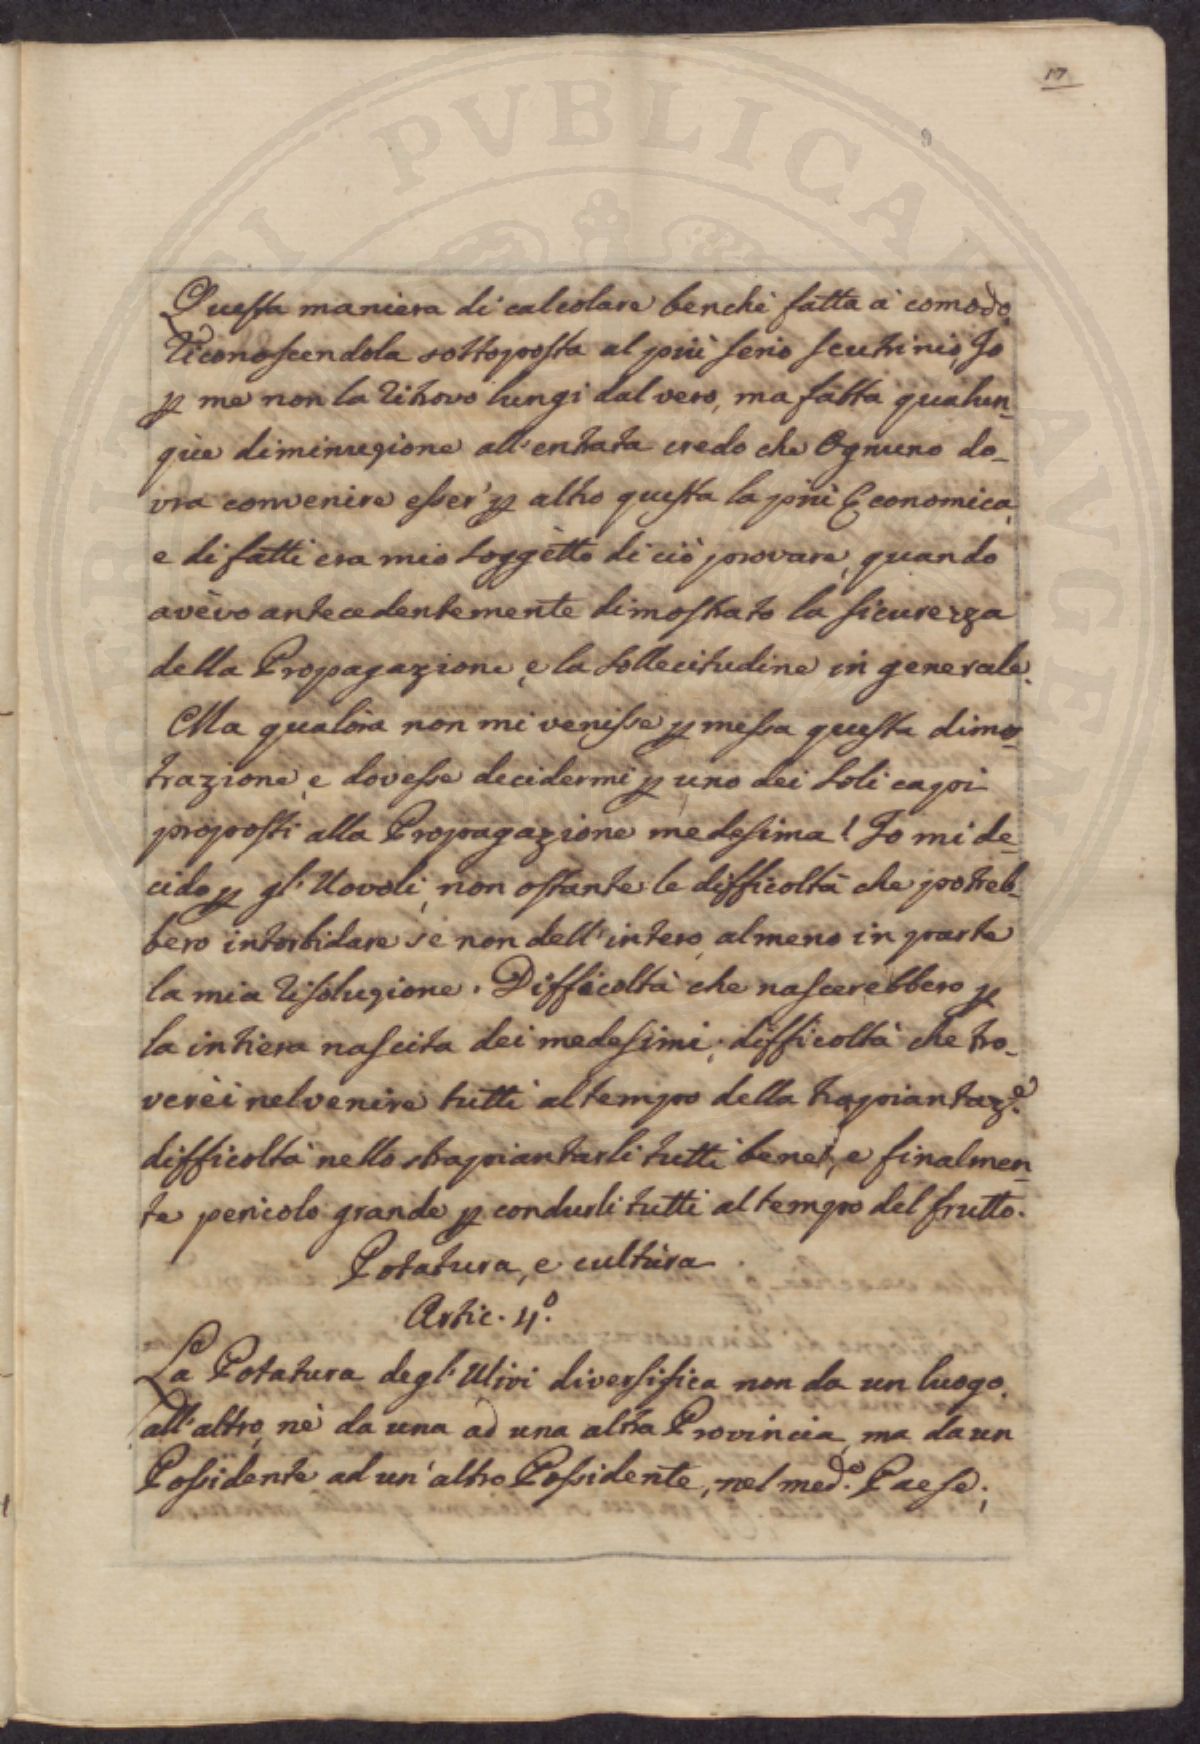 17
Questa maniera di calcolare benchè fatta a comodo,
riconoscendola sottoposta al più serio scutrinio, Io
p me non la ritrovo lungi dal vero, ma fatta qualun-
que diminuzione all'entrata credo che Ognuno do-
vra convenire esser p altro questa la più Economica,
e di fatti era mio soggetto di ciò provare, quando
avèvo antecedentemente dimostrato la sicurezza
della Propagazione, e la sollecitudine in generale.
Ma qualora non mi venisse p messa questa dimos-
trazione, e dovesse decidermi p uno dei soli capi
proposti alla Propagazione medesima! Io mi de-
cido p gl'Uovoli, non ostante le difficoltà che potreb-
bero intorbidare se non dell'intero, almeno in parte
la mia risoluzione. Difficoltà che nascerebbero p
la intiera nascita dei medesimi; difficoltà che tro-
verèi nel venire tutti al tempo della trapiantaz.e
difficoltà nello strapiantarli tutti bene, e finalmen-
te pericolo grande p condurli tutti al tempo del frutto.
Potatura, e cultura
Artic. 4.o
La Potatura degl'Ulivi diversifica non da un luogo,
all'altro, nè da una ad una altra Provincia, ma da un
Possidente ad un'altro Possidente, nel med.o Paese;
PERITI PVBLICAE AVGENT